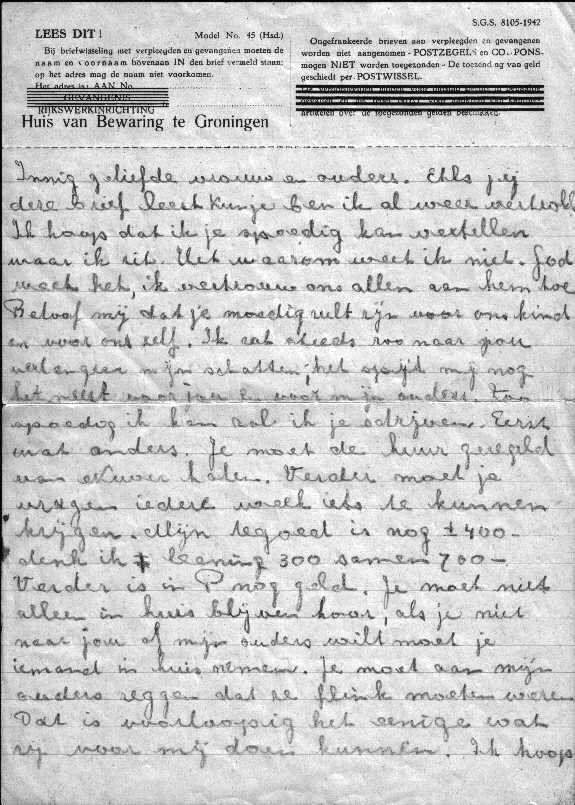 S.G.S. 8105-1942
LEES DIT! Model No. 45 (Had.)
Bij briefwisseling met verpleegden en gevangenen moeten de
naam en voornaam bovenaan IN den brief vermeld staan;
op het adres mag de naam niet voorkomen.
Het adres is: AAN No.
GEVANGENIS
RIJKSWERKINRICHTING
Huis van Bewaring te Groningen
Ongefrankeerde brieven aan verpleegden en gevangenen
worden niet aangenomen - POSTZEGELS en COUPONS
mogen NIET worden toegezonden - De toezending van geld
geschiedt per POSTWISSEL.
artikelen over de toegezonden gelden beschikken.
Innig geliefde vrouw en ouders. Als jij
deze brief leest kunje ben ik al weer vertrokk
Ik hoop dat ik je spoedig kan vertellen
waar ik zit. Het waarom weet ik niet. God
weet het, ik vertrouw ons allen aan hem toe
Beloof mij dat je moedig zult zijn voor ons kind
en voor ons zelf. Ik zat steeds zoo naar jou
verlangen mijn schatten; het spijt mij nog
het meest voor jou en voor mijn ouders. Zoo
spoedig ik kan zal ik je schrijven. Eerst
wat anders. Je moet de huur geregeld
van halen. Verder moet je
vragen iedere week iets te kunnen
krijgen. Mijn tegoed is nog ± 400-
denk ik + leening 300 samen 700-
Verder is in P nog geld. Je moet niet
alleen in huis blijven hoor, als je niet
naar jou of mijn ouders wilt moet je
iemand in huis nemen. Je moet aan mijn
ouders zeggen dat ze flink moeten wezen
Dat is voorloopig het eenige wat
zij voor mij doen kunnen. Ik hoop